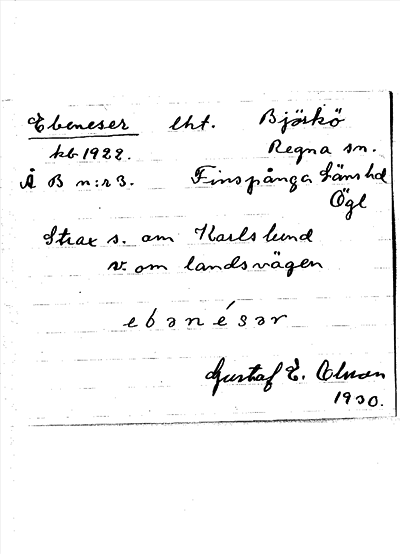 Ebeneser lht. Björkö
kb 1922. Regna sn.
Å B n:r 3. Finspånga Läns hd
Ögl
Strax s. om Karlslund
v. om landsvägen
ebənésər
Gustaf E.
1930.